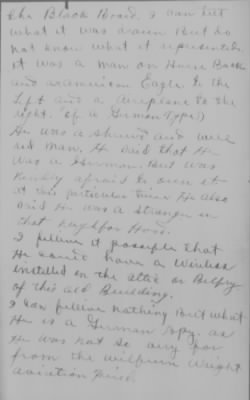 the Black Board. I can tell
what it was drawn But do
not know what it represented
it was a man on Horse Back
and an American Eagle. to the
Left and a aireplane to the
right. (of a German Type?)
He was a shrewd and well
red man. He said that He
was a German. But was
afraid to own it
at this particular time. He also
said He was a stranger in
that neighfor Hood.
I believe it possible that
He could have a Wireless
installed in the attic or Belfry
of this old Building.
I can believe nothing But what
He is a German spy. as
He was not so very far
from the Wilburn Wright
aviation Field.